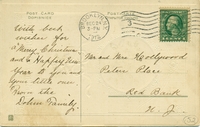 POST CARD
With best
wishes for
a Merry Christmas
and a Happy New
Year to you and
your little one
from the
Family
BROOKLYN
DEC 24
PM
1912
Mr and Mrs Hollywood
Peters Place
Red Bank
N. J.